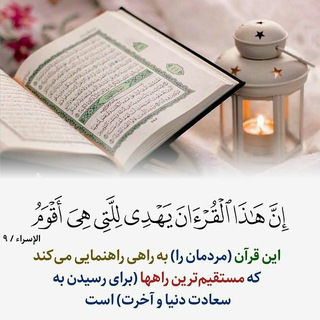 إِنَّ هَٰذَا ٱلْقُرْءَانَ يَهْدِى لِلَّتِى هِىَ أَقْوَمُ
الإسراء / ٩
این قرآن (مردمان را) به راهی راهنمایی می‌کند
که مستقیم‌ترین راهها (برای رسیدن به
سعادت دنیا و آخرت) است